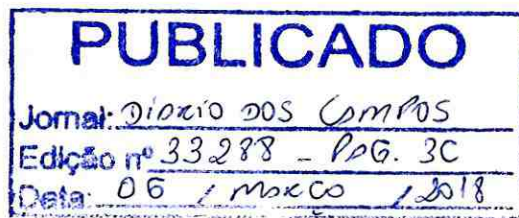 PUBLICADO
Jornal: DIÁRIO DOS CAMPOS
Edição nº 33288 - PAG. 3C
Data: 06 / MARCO / 2018